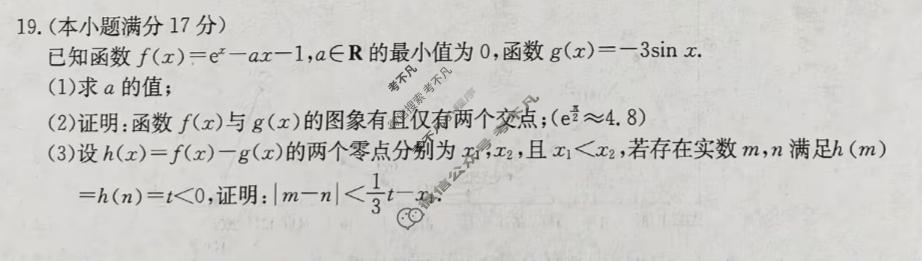 19.(本小题满分17分)
已知函数 f(x)=eˣ-ax-1,a∈R 的最小值为0,函数 g(x)=-3sin x.
(1)求 a 的值;
(2)证明:函数 f(x)与 g(x)的图象有且仅有两个交点;(e^{\frac{π}{2}}≈4.8)
(3)设 h(x)=f(x)-g(x)的两个零点分别为 x₁,x₂,且 x₁<x₂,若存在实数 m,n 满足h(m)
=h(n)=t<0,证明:|m-n|<\frac{1}{3}t-x₁.
考不凡
考不凡
微信公众号 考不凡